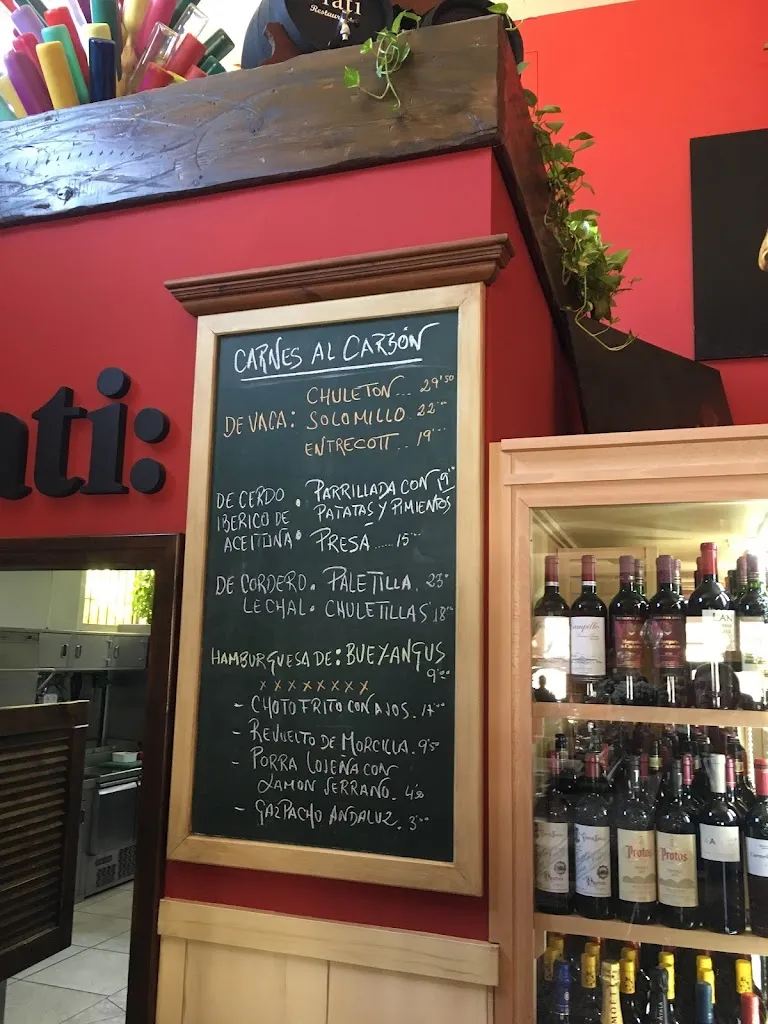 Tati
Restaurante
ati:
CARNES AL CARBÓN
CHULETON... 29'50
DE VACA: SOLOMILLO. 22'00
ENTRECOTT.. 19'00
DE CERDO . PARRILLADA CON 19'00
IBERICO DE PATATAS Y PIMIENTOS
ACEITUNA . PRESA ..... 15'00
DE CORDERO . PALETILLA. 23'00
LECHAL . CHULETILLAS 18'00
HAMBURGUESA DE: BUEY ANGUS
9'00
x x x x x x x x
- CHOTO FRITO CON AJOS. 17'00
- REVUELTO DE MORCILLA. 9'50
- PORRA LOJEÑA CON
JAMON SERRANO. 4'50
- GAZPACHO ANDALUZ. 3'00
LAN
Protos
Protos
MOET